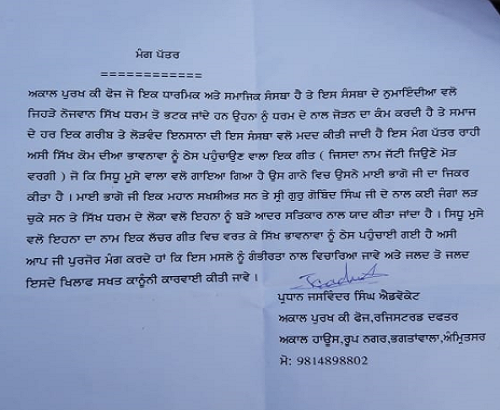 ਮੰਗ ਪੱਤਰ
============
ਅਕਾਲ ਪੁਰਖ ਕੀ ਫੋਜ ਜੋ ਇਕ ਧਾਰਮਿਕ ਅਤੇ ਸਮਾਜਿਕ ਸੰਸਥਾ ਹੈ ਤੇ ਇਸ ਸੰਸਥਾ ਦੇ ਨੁਮਾਇੰਦੀਆ ਵਲੋ
ਜਿਹੜੇ ਨੋਜਵਾਨ ਸਿੱਖ ਧਰਮ ਤੋ ਭਟਕ ਜਾਂਦੇ ਹਨ ਉਹਨਾ ਨੂੰ ਧਰਮ ਦੇ ਨਾਲ ਜੋੜਨ ਦਾ ਕੰਮ ਕਰਦੀ ਹੈ ਤੇ ਸਮਾਜ
ਦੇ ਹਰ ਇਕ ਗਰੀਬ ਤੇ ਲੋੜਵੰਦ ਇਨਸਾਨਾ ਦੀ ਇਸ ਸੰਸਥਾ ਵਲੋ ਮਦਦ ਕੀਤੀ ਜਾਦੀ ਹੈ ਇਸ ਮੰਗ ਪੱਤਰ ਰਾਹੀ
ਅਸੀ ਸਿੱਖ ਕੋਮ ਦੀਆ ਭਾਵਨਾਵਾ ਨੂੰ ਠੇਸ ਪਹੁੰਚਾਉਣ ਵਾਲਾ ਇਕ ਗੀਤ ( ਜਿਸਦਾ ਨਾਮ ਜੱਟੀ ਜਿਉਣੇ ਮੋੜ
ਵਰਗੀ ) ਜੋ ਕਿ ਸਿਧੂ ਮੂਸੇ ਵਾਲਾ ਵਲੋ ਗਾਇਆ ਗਿਆ ਹੈ ਉਸ ਗਾਨੇ ਵਿਚ ਉਸਨੇ ਮਾਈ ਭਾਗੋ ਜੀ ਦਾ ਜਿਕਰ
ਕੀਤਾ ਹੈ । ਮਾਈ ਭਾਗੋ ਜੀ ਇਕ ਮਹਾਨ ਸਖਸ਼ੀਅਤ ਸਨ ਤੇ ਸ੍ਰੀ ਗੁਰੂ ਗੋਬਿੰਦ ਸਿੰਘ ਜੀ ਦੇ ਨਾਲ ਕਈ ਜੰਗਾ ਲੜ
ਚੁਕੇ ਸਨ ਤੇ ਸਿੱਖ ਧਰਮ ਦੇ ਲੋਕਾ ਵਲੋ ਇਹਨਾ ਨੂੰ ਬੜੇ ਆਦਰ ਸਤਿਕਾਰ ਨਾਲ ਯਾਦ ਕੀਤਾ ਜਾਂਦਾ ਹੈ । ਸਿਧੂ ਮੂਸੇ
ਵਲੋ ਇਹਨਾ ਦਾ ਨਾਮ ਇਕ ਲੱਚਰ ਗੀਤ ਵਿਚ ਵਰਤ ਕੇ ਸਿੱਖ ਭਾਵਨਾਵਾ ਨੂੰ ਠੇਸ ਪਹੁੰਚਾਈ ਗਈ ਹੈ ਅਸੀ
ਆਪ ਜੀ ਪੁਰਜੋਰ ਮੰਗ ਕਰਦੇ ਹਾਂ ਕਿ ਇਸ ਮਸਲੇ ਨੂੰ ਗੰਭੀਰਤਾ ਨਾਲ ਵਿਚਾਰਿਆ ਜਾਵੇ ਅਤੇ ਜਲਦ ਤੋ ਜਲਦ
ਇਸਦੇ ਖਿਲਾਫ ਸਖਤ ਕਾਨੂੰਨੀ ਕਾਰਵਾਈ ਕੀਤੀ ਜਾਵੇ ।
ਪ੍ਰਧਾਨ ਜਸਵਿੰਦਰ ਸਿੰਘ ਐਡਵੋਕੇਟ
ਅਕਾਲ ਪੁਰਖ ਕੀ ਫੋਜ,ਰਜਿਸਟਰਡ ਦਫਤਰ
ਅਕਾਲ ਹਾਊਸ,ਰੂਪ ਨਗਰ,ਭਗਤਾਂਵਾਲਾ,ਅੰਮ੍ਰਿਤਸਰ
ਮੋ: 9814898802